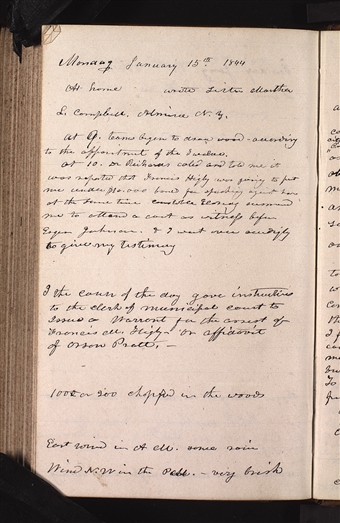 Monday January 15th 1844
At home wrote Letter Martha
L. Campbell, Almira N.Y.
at 9. teams began to draw wood - according
to the appointment of the Twelve.
at 10. Dr Richards called and told me it
was reported that Francis Higby was going to put
me under $10.000 bond for speaking against him
at the same time constable summond
me to attend a court as witness before
Esquire Johnson. & I went over accordingly
to give my testimony
I the course of the day gave instruction
to the clerk of municipal court to
Issue a Warrant for the arrest of
Francis M. Higby on affidavit
of Orson Pratt. -
100 or 200 chopped in the woods
East wind in A M. some rain
Wind N.W in the P.M. - very brisk